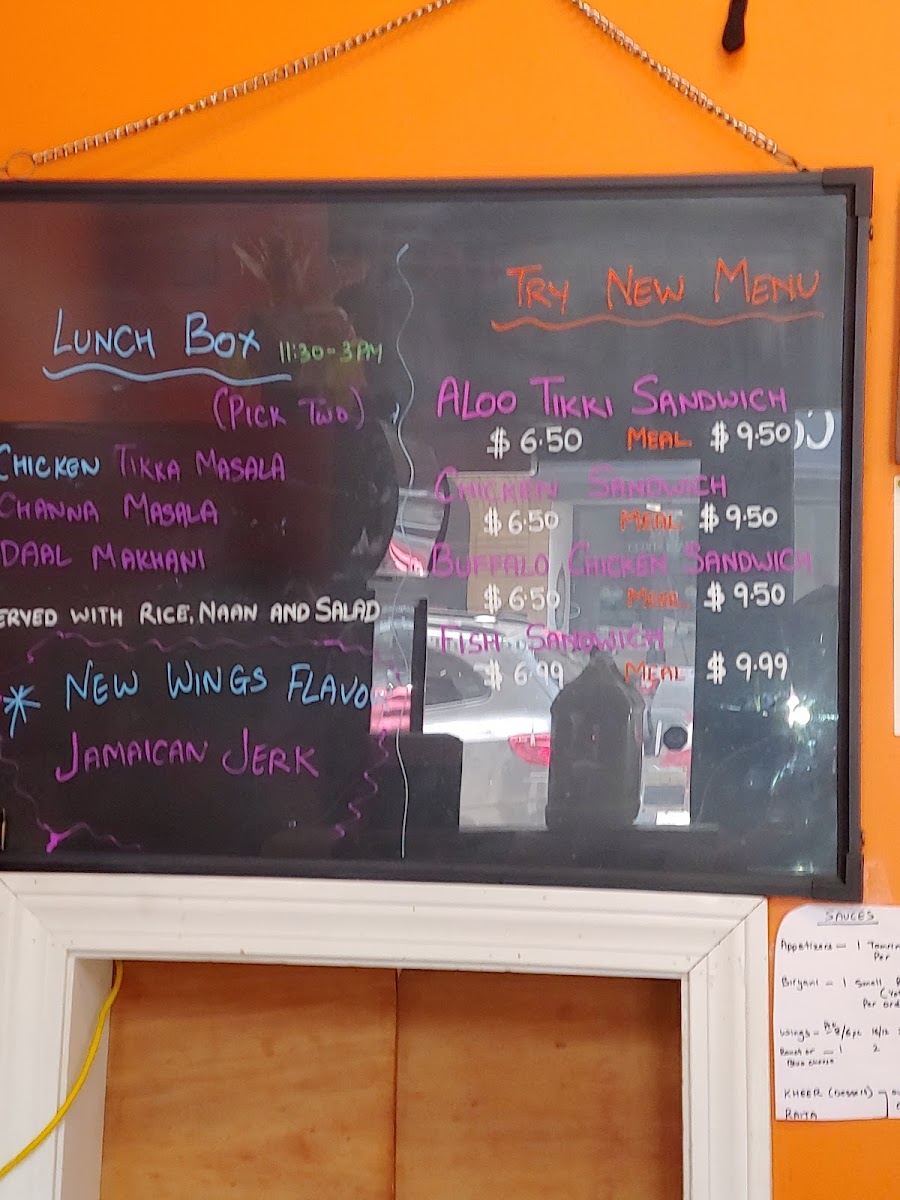 LUNCH BOX 11:30-3PM
(PICK TWO)
CHICKEN TIKKA MASALA
CHANNA MASALA
DAAL MAKHANI
ERVED WITH RICE, NAAN AND SALAD
* NEW WINGS FLAVO
JAMAICAN JERK
TRY NEW MENU
ALOO TIKKI SANDWICH
$6.50 MEAL $9.50
CHICKEN SANDWICH
$6.50 MEAL $9.50
BUFFALO CHICKEN SANDWICH
$6.50 MEAL $9.50
FISH SANDWICH
$6.99 MEAL $9.99
SAUCES
Appetizers - 1
Per
Biryani - 1 Small
Per
Wings =
1 2
KHEER (Dessert)
RAITA